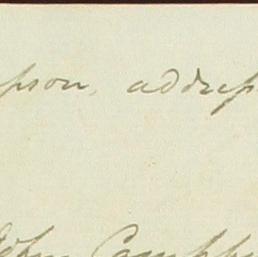 pson, address
John Campb